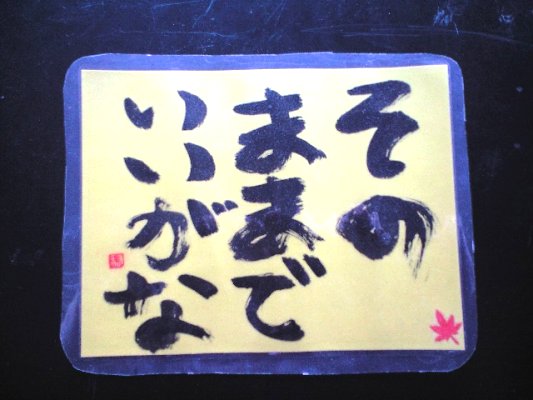 その
ままで
いいがな